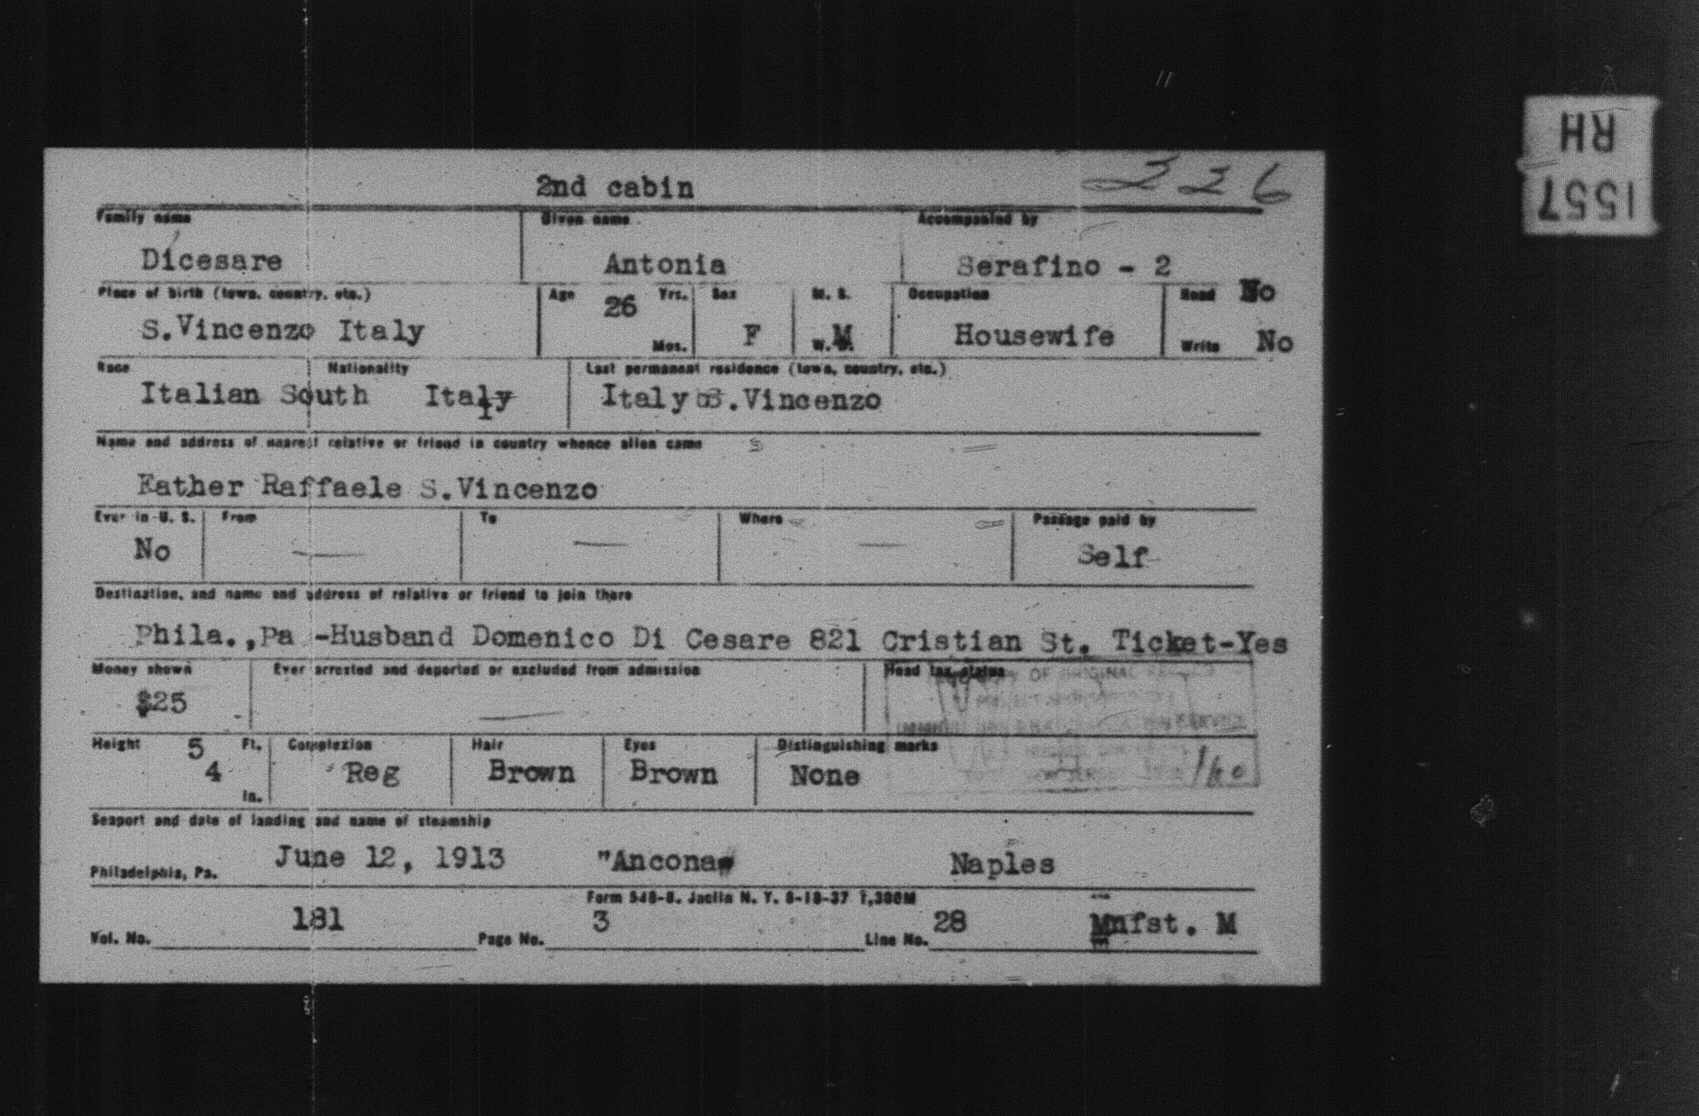 2nd cabin 226
Family name Given name Accompanied by
Dicesare Antonia Serafino - 2
Place of birth (town, country, etc.) Age 26 Yrs. Sex M. S. Occupation Read No
S.Vincenzo Italy Mos. F W. D. M Housewife Write No
Race Nationality Last permanent residence (town, country, etc.)
Italian South Italy Italy S.Vincenzo
Name and address of nearest relative or friend in country whence alien came
Father Raffaele S.Vincenzo
Ever in U. S. From To Where Passage paid by
No — — — Self
Destination, and name and address of relative or friend to join there
Phila.,Pa -Husband Domenico Di Cesare 821 Cristian St. Ticket-Yes
Money shown Ever arrested and deported or excluded from admission Head tax status
$25 — OF ORIGINAL
SERVICE
Height 5 Ft. Complexion Hair Eyes Distinguishing marks
4 in. Reg Brown Brown None
Seaport and date of landing and name of steamship
Philadelphia, Pa. June 12, 1913 "Ancona" Naples
Form 548-B. Jaclin N. Y. 6-18-37 1,300M
Vol. No. 181 Page No. 3 Line No. 28 Mnfst. M
1557
RH